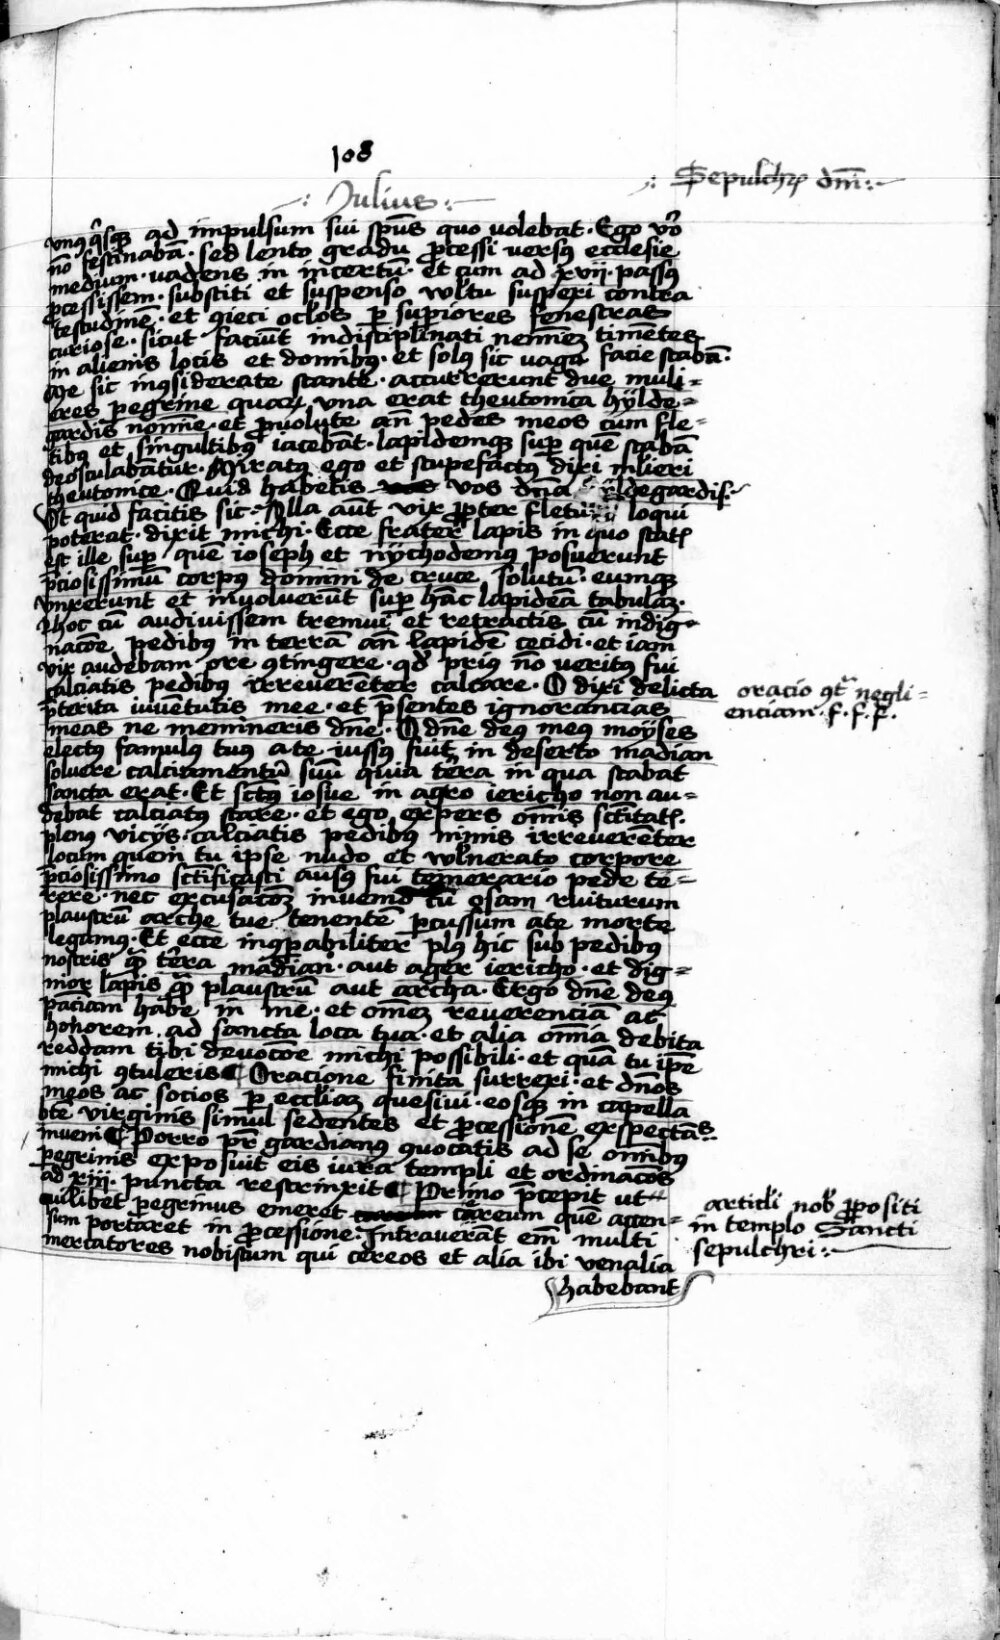 108
Sepulchrū dnī
Julius
vnusq̄sqꝫ ad impulsum sui spūs quo volebat. Ego vo
nō festinabā. sed lento gradu ꝓcessi versꝯ ecclesie
medium. vadens in incertū. et cum ad xvij. passꝯ
ꝓcessissem. substiti et suspenso vultu suspexi contra
testudinē. et ꝯieci oclos ꝑ supiores fenestras
curiose. sicut faciūt indisciplinati neminē timētes
in alienis locis et domibꝯ. et solꝯ sic vaga facie stabā.
Me sic inꝯsiderate stante. accurrerunt due muli=
eres peregrine quaꝝ vna erat theutonica hylde=
gardis nomīe. et ꝓvolute an̄ pedes meos cum fle=
tibꝯ et singultibꝯ iacebāt. lapidemqꝫ suꝑ quē stabā
deosculabantur. Miratꝯ ego et stupefactꝯ dixi mlieri
theutonice. Quid habetis vos dn̄a hildegardis.
Vt quid facitis sic. Illa aūt vix ꝓpter fletū loqui
poterat. dixit michi. Ecce frater lapis in quo statꝭ
est ille suꝑ quē ioseph et nychodemꝯ posuerunt
p̄ciosissimū corpꝯ domini de cruce solutū. eumqꝫ
vnxerunt et involuerūt suꝑ hāc lapideā tabulaꝫ.
Hoc cū audivissem tremui et retractis cū indig=
nacōe pedibꝯ in terrā an̄ lapidē cecidi. et iam
vix audebam ore ꝯtingere. qd̄ priꝯ nō veritꝯ fui
calciatis pedibꝯ irreverēter calcare. O dixi delicta
p̄terita iuuētutis mee. et p̄sentes ignorancias
meas ne memineris dn̄e. O dn̄e deꝯ meꝯ moyses
electꝯ famulꝯ tuꝯ a te iussꝯ fuit in deserto madian
soluere calciamentū suū quia terra in qua stabat
sancta erat. Et sctꝯ iosue in agro iericho non au=
debat calciatꝯ stare. et ego expers omīs sctītatꝭ.
plenꝯ vicijs. calciatis pedibꝯ nimis irreverēter
locum quem tu ipse nudo et vulnerato corpore
p̄ciosissimo sctīficasti ausꝯ fui temerario pede te=
rere. nec excusacōeꝫ invenio cū osam ruiturum
plaustrū arche tue tenentē ꝑcussum a te morte
legamꝯ. Et ecce inꝯꝑabiliter plꝯ hic sub pedibꝯ
nostris q̄ꝫ terra madian. aut ager iericho. et dig=
nior lapis q̄ꝫ plaustrū aut archa. Ergo dn̄e deꝯ
paciam habe in me. et omeꝫ reverenciā ac
honorem ad sancta loca tua. et alia omīa debita
reddam tibi devocōe michi possibili. et quā tu ipē
michi ꝯtuleris ¶ Oracione finita surrexi. et dn̄os
meos ac socios ꝑ eccliaꝫ quesivi. eosqꝫ in capella
btē virginis simul sedentes et ꝓcessionē exspectātes
inveni ¶ Porro pr̄ gardianꝯ vocatis ad se omibꝯ
peregrinis exposuit eis iura templi et ordinacōes
ad xiij. puncta restrinxit ¶ Primo p̄cepit ut
quilibet peregrinus emeret cereum quē accen=
sum portaret in ꝓcessione. Intraverāt em̄ multi
mercatores nobiscum qui cereos et alia ibi venalia
habebant
oracio ꝯtra negli=
enciam. f. f. f.
articli nob ꝓpositi
in templo Sancti
sepulchri